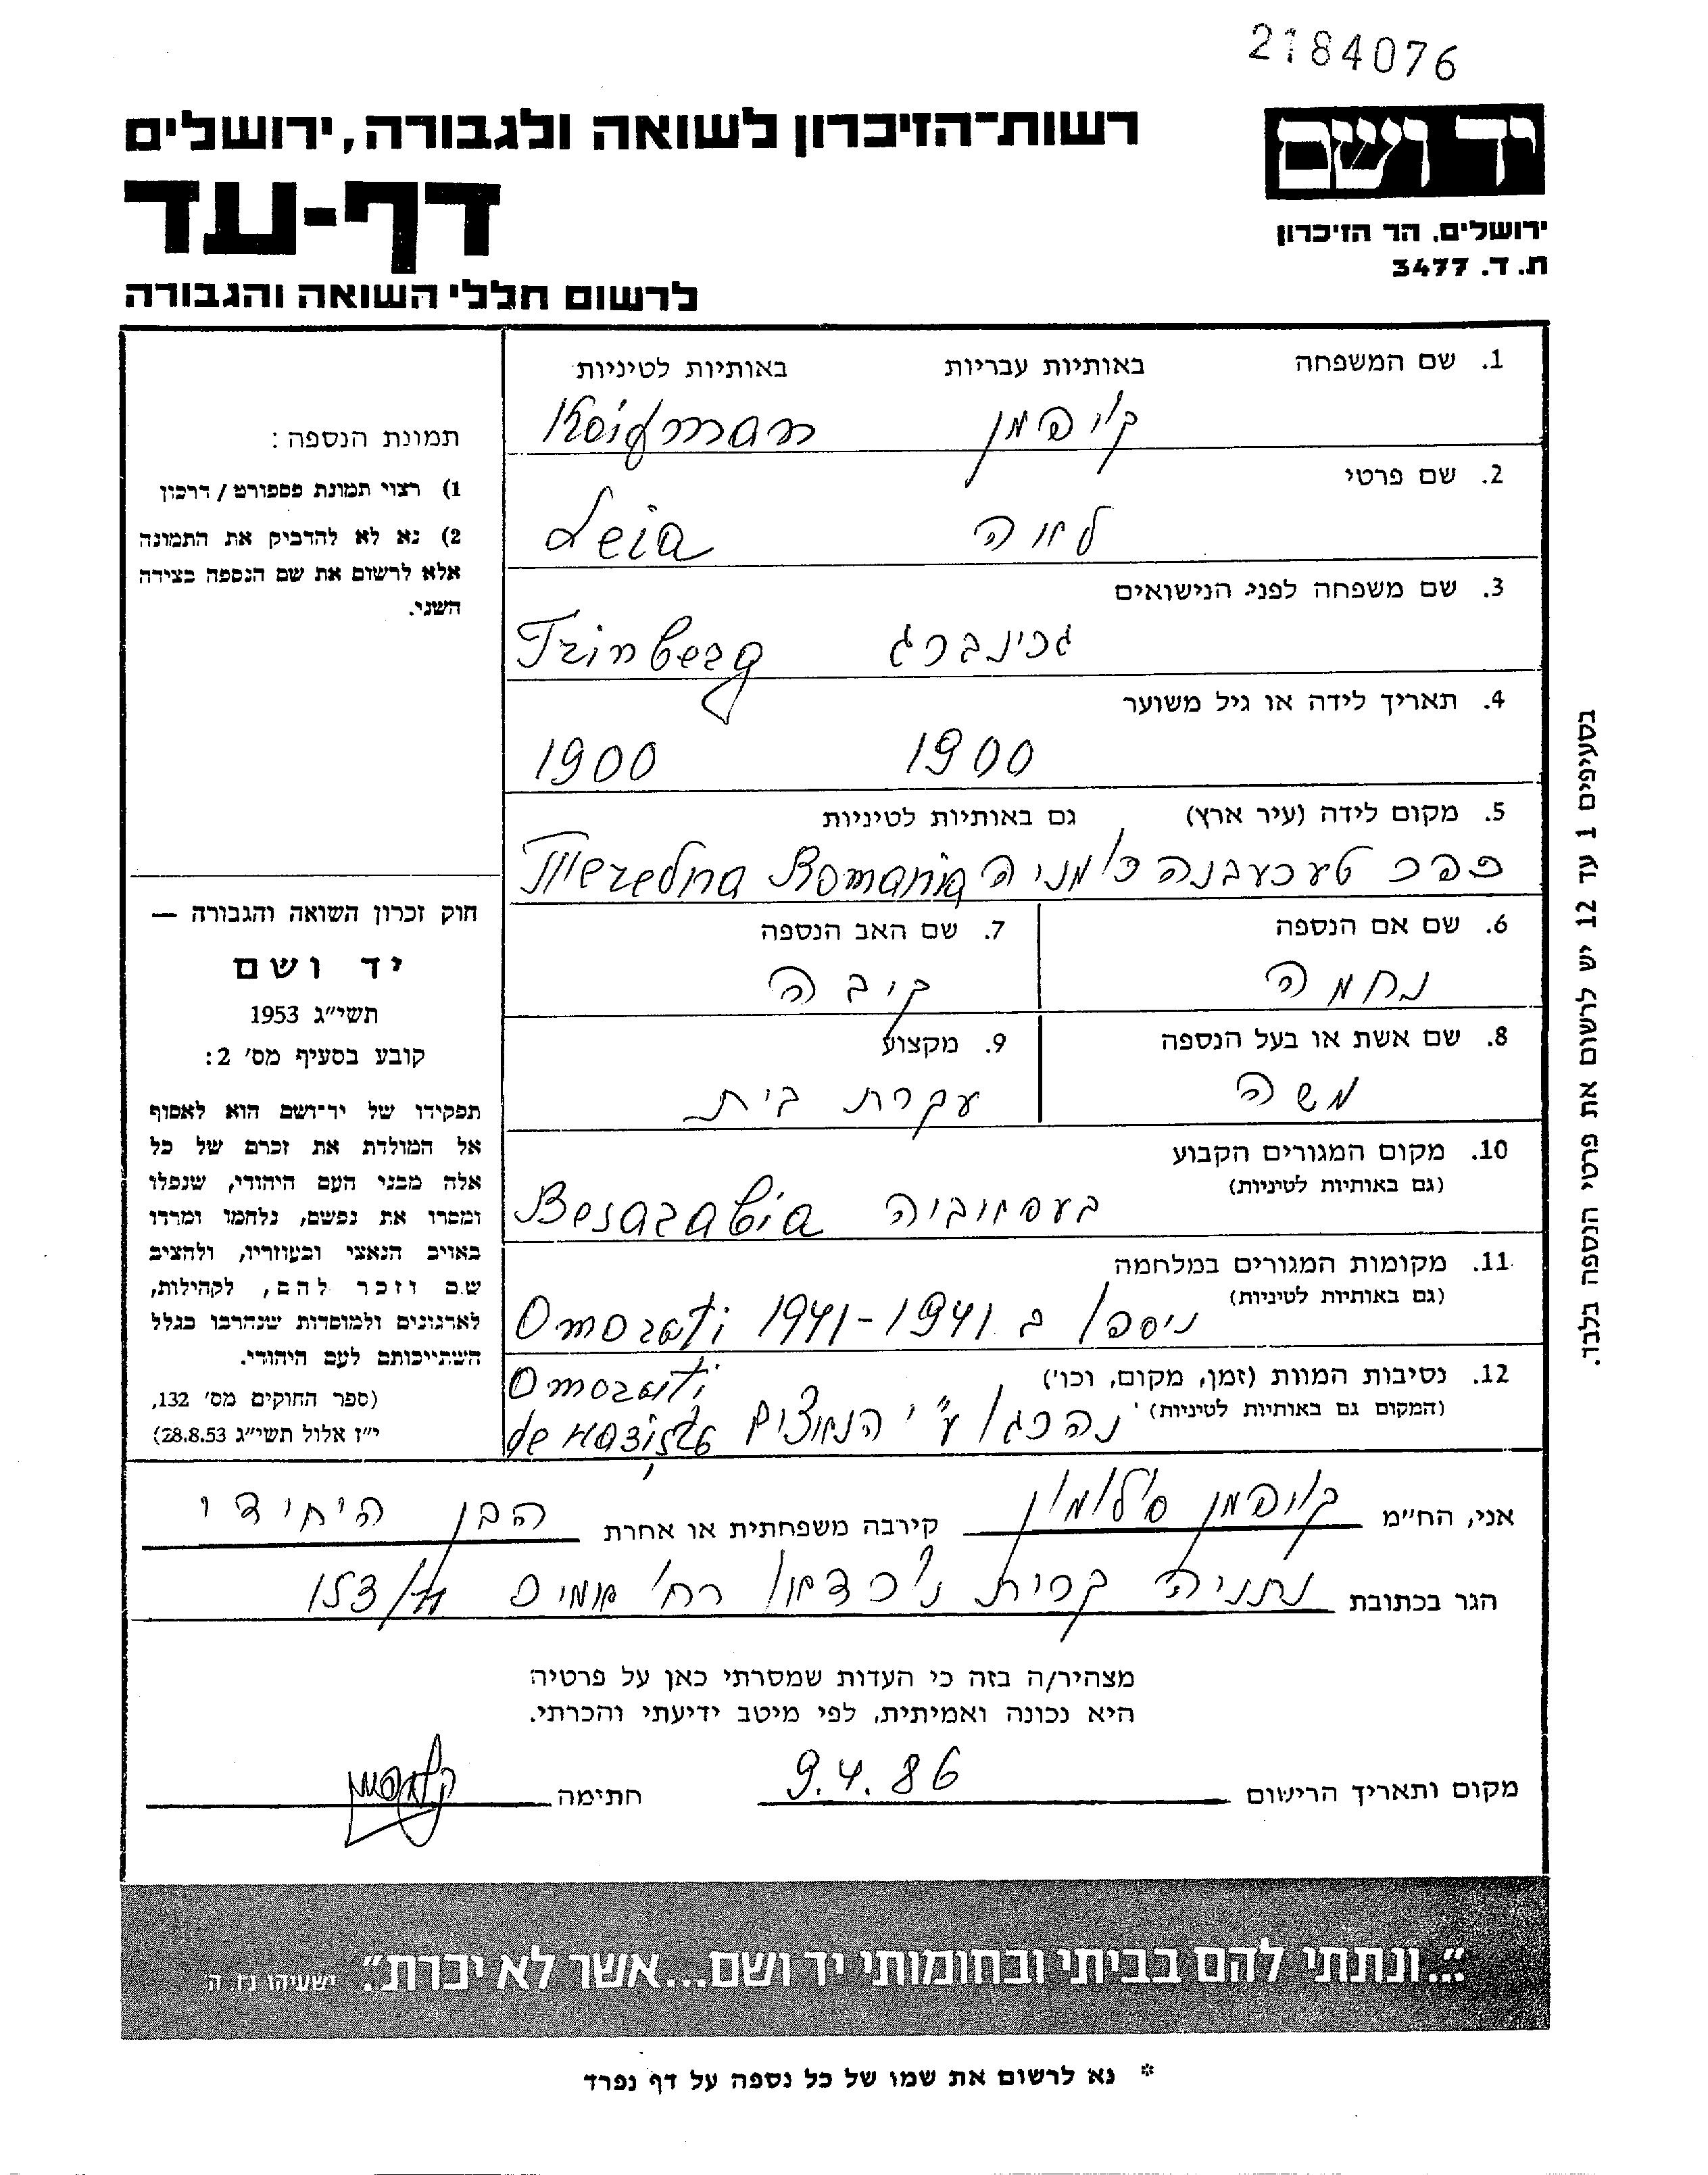 2184076
יד ושם
ירושלים, הר הזיכרון
ת. ד. 3477
רשות-הזיכרון לשואה ולגבורה, ירושלים
דף-עד
לרשום חללי השואה והגבורה
1. שם המשפחה באותיות עבריות באותיות לטיניות
קויפמן Koifman
2. שם פרטי
לאה Leia
3. שם משפחה לפני הנישואים
גרינברג Grinberg
4. תאריך לידה או גיל משוער
1900 1900
5. מקום לידה (עיר ארץ) גם באותיות לטיניות
כפר רומניה Romania
6. שם אם הנספה
נחמה
7. שם האב הנספה
קיבה
8. שם אשת או בעל הנספה
משה
9. מקצוע
עקרת בית
10. מקום המגורים הקבוע
(גם באותיות לטיניות)
בעסאביה Besarabia
11. מקומות המגורים במלחמה
(גם באותיות לטיניות)
ניספו ב 1941-1941 Omorati
12. נסיבות המוות (זמן, מקום, וכו')
(המקום גם באותיות לטיניות)
Omorati
נהרגו ע"י הנאצים de naziste
תמונת הנספה:
1) רצוי תמונת פספורט / דרכון
2) נא לא להדביק את התמונה
אלא לרשום את שם הנספה בצידה
השני.
חוק זכרון השואה והגבורה —
יד ושם
תשי"ג 1953
קובע בסעיף מס' 2:
תפקידו של יד-ושם הוא לאסוף
אל המולדת את זכרם של כל
אלה מבני העם היהודי, שנפלו
ומסרו את נפשם, נלחמו ומרדו
באויב הנאצי ובעוזריו, ולהציב
שם וזכר להם, לקהילות,
לארגונים ולמוסדות שנהרבו בגלל
השתייכותם לעם היהודי.
(ספר החוקים מס' 132,
י"ז אלול תשי"ג 28.8.53)
בסעיפים 1 עד 12 יש לרשום את פרטי הנספה בלבד.
אני, הח"מ קויפמן סולומון קירבה משפחתית או אחרת הבן היחידי
הגר בכתובת נתניה קרית נורדאו רח' 153/
מצהיר/ה בזה כי העדות שמסרתי כאן על פרטיה
היא נכונה ואמיתית, לפי מיטב ידיעתי והכרתי.
מקום ותאריך הרישום 9.4.86 חתימה
"...ונתתי להם בביתי ובחומותי יד ושם...אשר לא יכרת". ישעיהו נו, ה'
* נא לרשום את שמו של כל נספה על דף נפרד